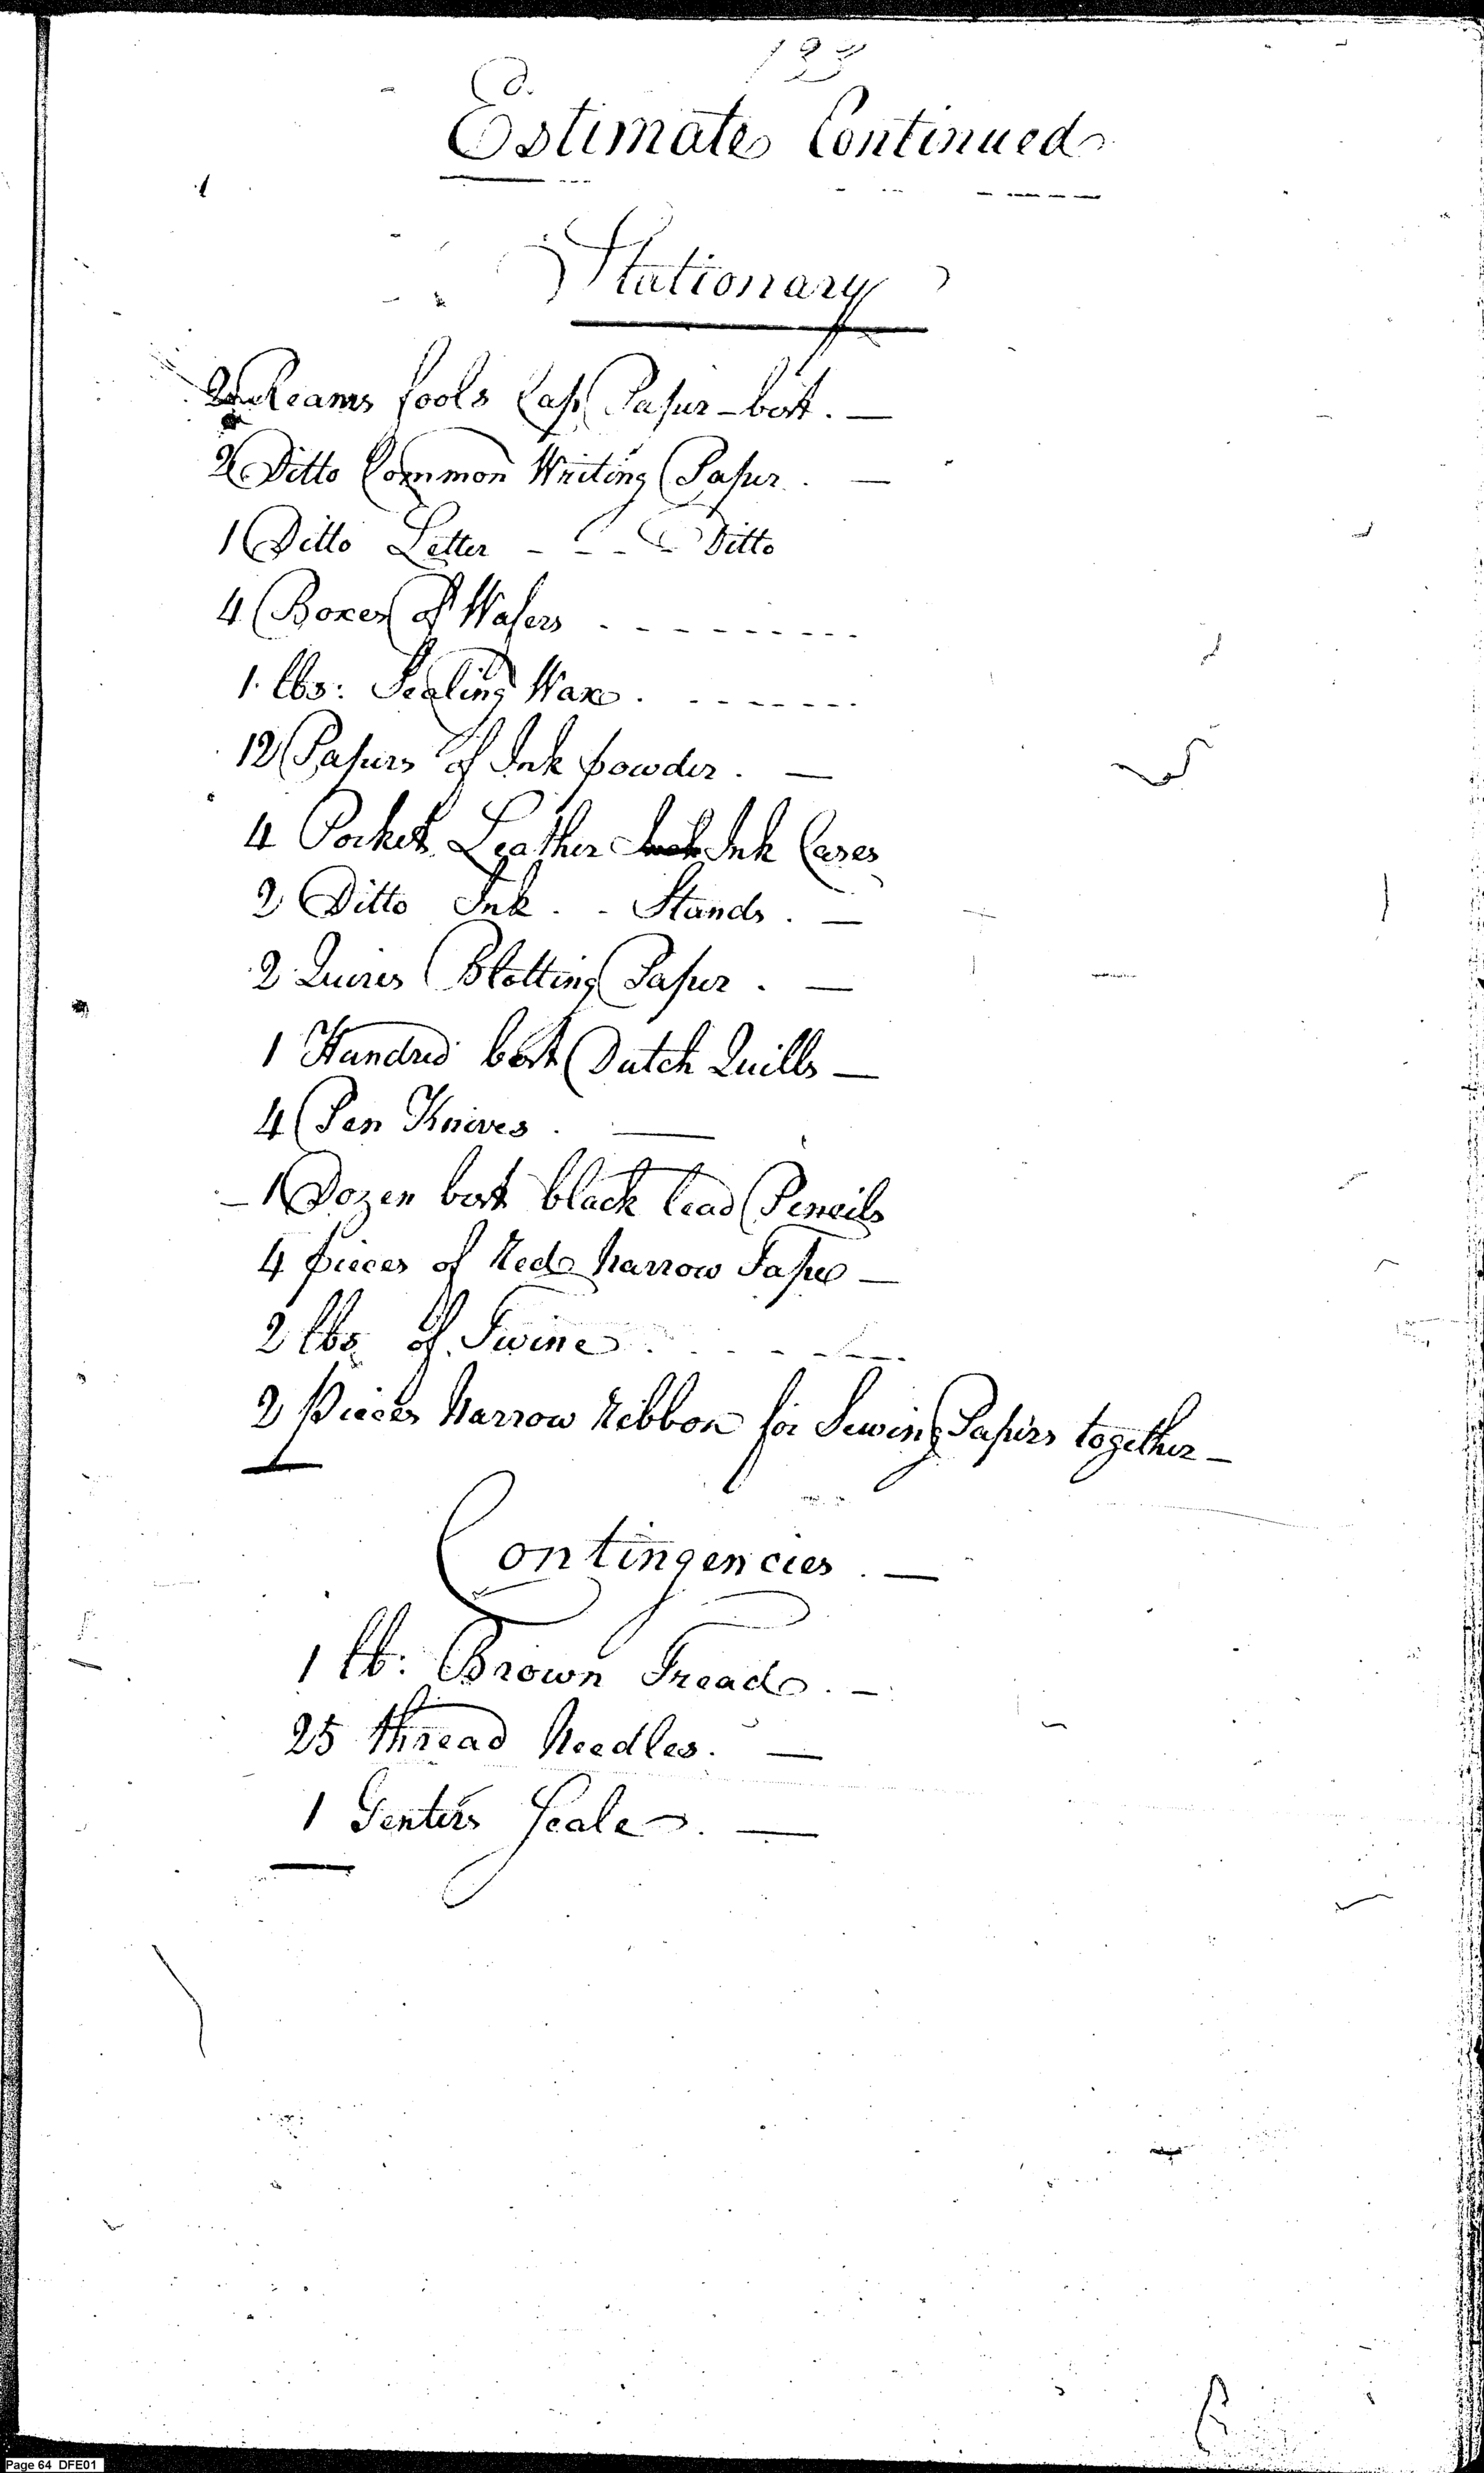 133
Estimate Continued
Stationary
2 Reams fools Cap Paper - best. —
2 Ditto Common Writing Paper. —
1 Ditto Letter - - - - Ditto
4 Boxes of Wafers - - - - - - - - -
1 lbs: Sealing Wax. - - - - - - -
12 Papers of Ink powder. —
4 Pocket Leather Ink Cases
2 Ditto Ink - - Stands. —
2 Quires Blotting Paper. —
1 Hundred best Dutch Quills —
4 Pen Knives. —
1 Dozen best black lead Pencils
4 pieces of Red narrow Tape —
2 lbs of Twine - - - - - -
2 Pieces narrow Ribbon for Sewing Papers together —
Contingencies. —
1 lb: Brown Tread. —
25 thread Needles. —
1 Genters Scale. —
Page 64 DFE01